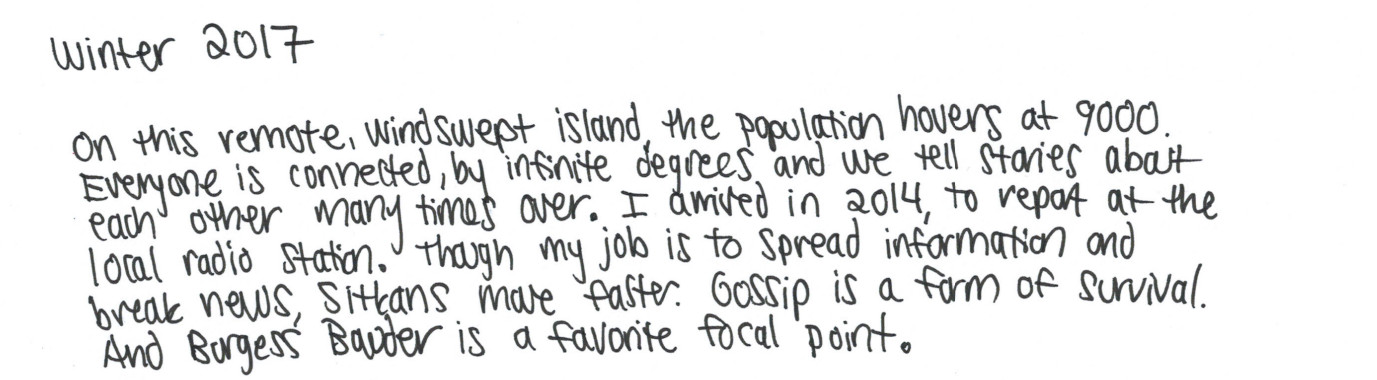 Winter 2017
On this remote, windswept island, the population hovers at 9000.
Everyone is connected, by infinite degrees and we tell stories about
each other many times over. I arrived in 2014, to report at the
local radio station. Though my job is to spread information and
break news, Sitkans move faster. Gossip is a form of survival.
And Burgess Bauder is a favorite focal point.